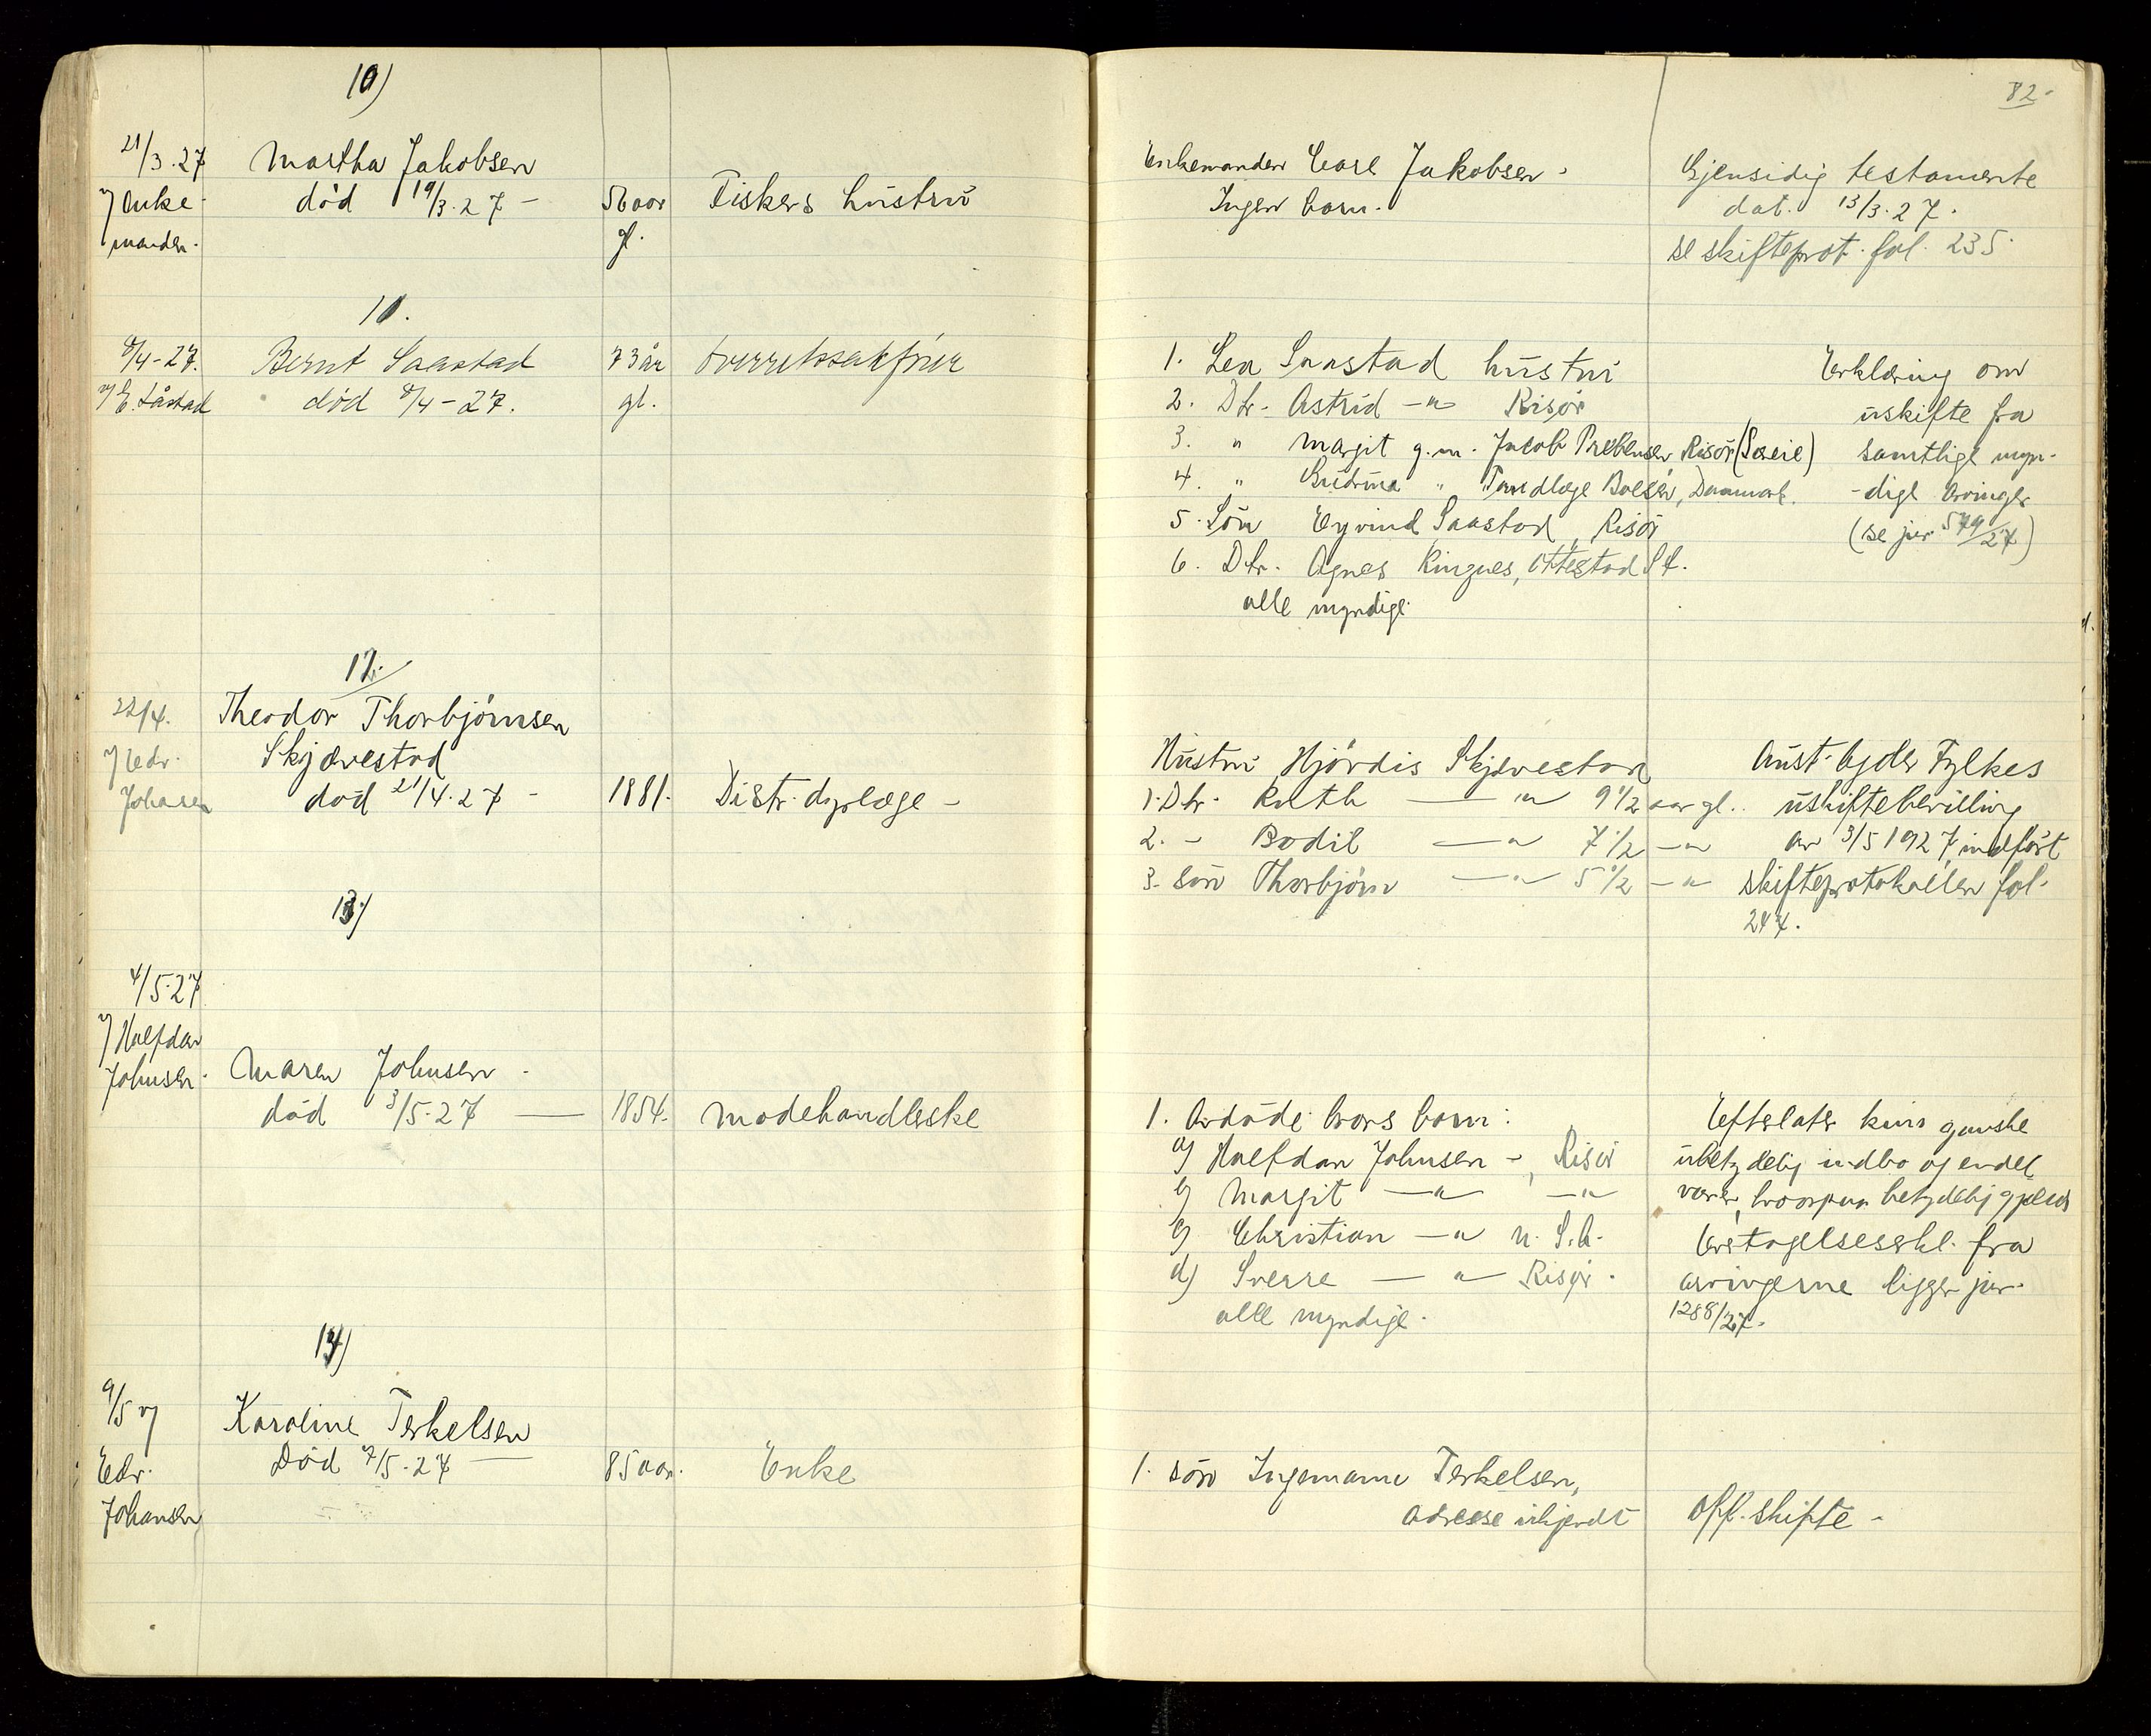 82.
10)
21/3.27 Martha Jakobsen
v/ Enke- død 19/3.27 - 56 aar Fiskers hustru
manden. gl.
Enkemanden Carl Jakobsen.
Ingen barn.
Gjensidig testamente
dat. 13/3.27.
se skifteprot. fol. 235.
11.
8/4-27. Bernt Saastad 73 år Overretssakfører
v/ E. Såstad død 8/4-27. gl.
1. Lea Saastad hustru
2. Dtr. Astrid —"— Risør
3. " Margit g.m. Jacob Prebensen Risør (Særeie)
4. " " Tandlæge Boesen, Danmark.
5. Søn Eyvind Saastad, Risør
6. Dtr. Agnes Ringnes, Ottestad St.
alle myndige.
Erklæring om
uskifte fra
samtlige myn-
-dige arvinger
(se jur 579/27)
12.
22/4. Theodor Thorbjørnsen
v/ Edv. Skjævestad
Johansen død 21/4.27 - 1881. Distr. dyrlæge -
Hustru Hjørdis Skjævestad
1. Dtr. Ruth —"— 9 1/2 aar gl.
2. - Bodil —"— 7 1/2 —"—
3. Søn Thorbjørn —"— 5 1/2 —"—
Aust-Agder Fylkes
uskiftebevilling
av 3/5 1927 indført
skifteprotokollen fol.
247.
13)
4/5.27
v/ Halfdan
Johnsen. Maren Johnsen.
død 3/5.27 — 1854. Modehandlerske
1. Avdøde brors barn:
a) Halfdan Johnsen -, Risør
b) Margit —"— —"—
c) Christian —"— U.S.A.
d) Sverre —"— Risør.
alle myndige.
Efterlater kun ganske
ubetydelig indbo og endel
varer, hvorpaa betydelig gjæld
Overtagelseserkl. fra
arvingerne ligger jur.
1288/27.
14)
9/5 v/ Karoline Terkelsen
Edv. Død 7/5.27 — 85 aar. Enke
Johansen
1. Søn Ingemann Terkelsen,
adresse ukjendt
Off. skifte -